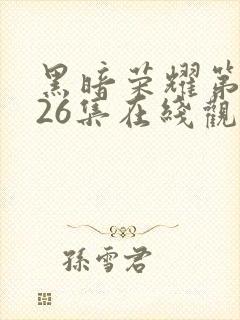 黑暗荣耀第
26集在线觀
孫雪君